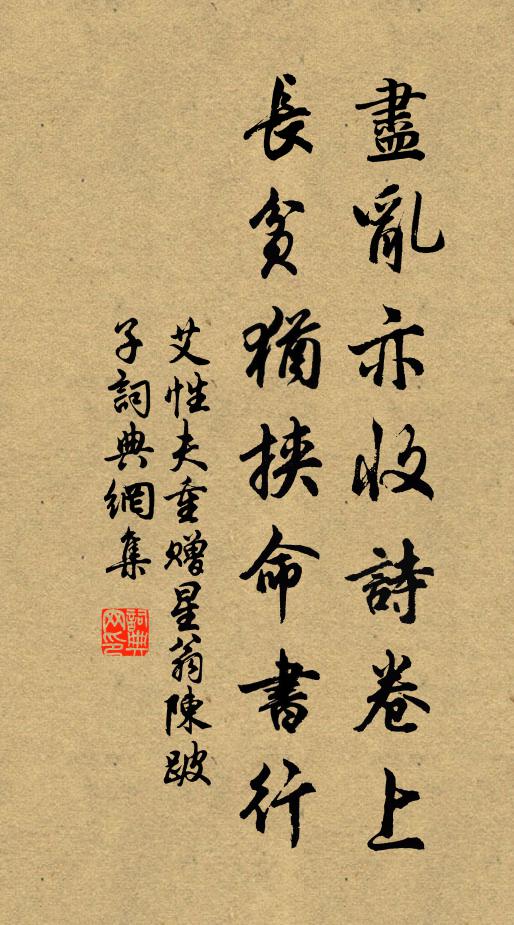 盡亂亦收詩卷上
長貧猶挾命書行
艾性夫重贈星翁陳跛
子詞典網集
詞典網印